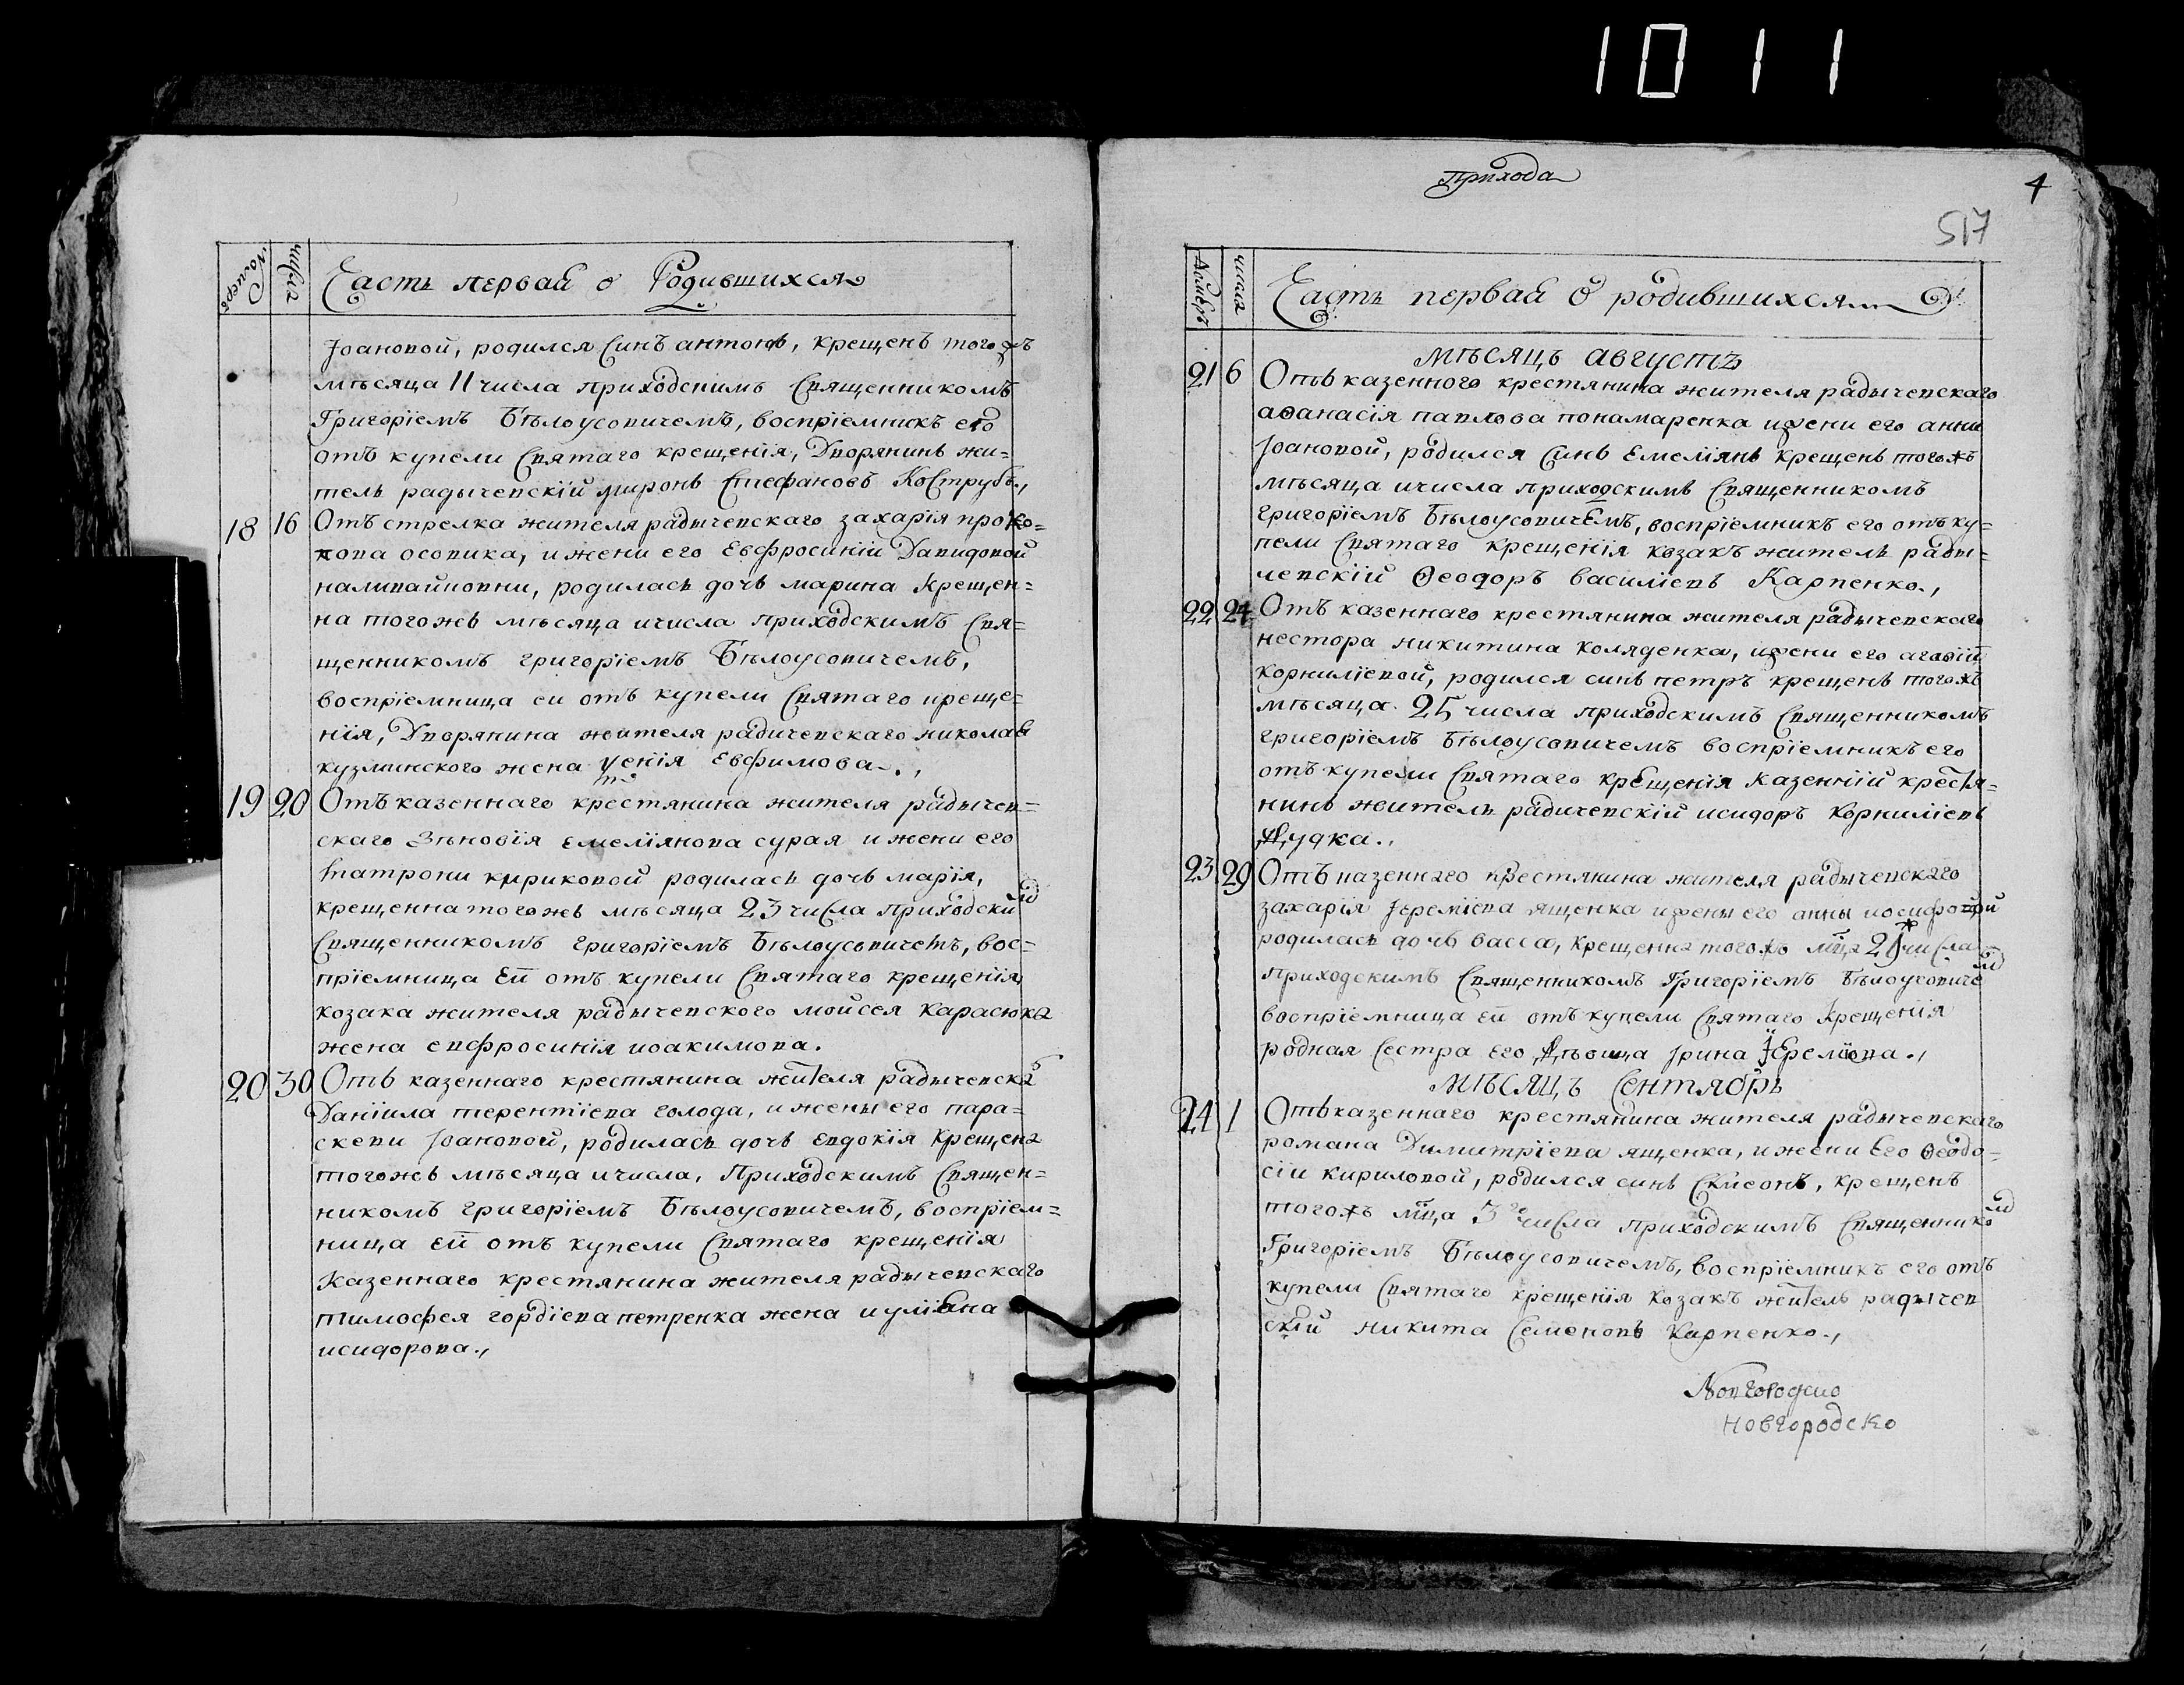 1011
Прихода
4
517
Номеръ
числа
Часть первая о Родившихся
Іоановой, родился синъ антоній, крещенъ тогожъ
мѣсяца 11 числа приходскимъ Священникомъ
Григоріемъ Бѣлоусовичемъ, воспріемникъ его
отъ купели Святаго крещенія, Дворянинъ жи=
тель радычевскій миронъ Стефановъ Кострубъ.,
18 16 Отъ стрелка жителя радычевскаго захарія проко=
копа осовика, и жени его Евфросиніи Давидовой
наливайновни, родилась дочь марина крещен=
на тогожъ мѣсяца ичисла приходскимъ Свя=
щенникомъ григоріемъ Бѣлоусовичемъ,
воспріемница еи отъ купели Святаго креще=
нія, Дворянина жителя радичевскаго николая
кузминского жена Евфимова.,
19 20 Отъ казеннаго крестянина жителя радычев=
скаго Зѣновія емеліянова сурая и жени его
матрони кириковой родилась дочь марія,
крещенна тогожъ мѣсяца 23 числа приходским
Священникомъ григоріемъ Бѣлоусовичемъ, вос=
пріемница Ей отъ купели Святаго крещенія
козака жителя радычевского мойсея Карасюка
жена евфросинія иоакимова.
20 30 Отъ казеннаго крестянина жителя радычевска
Даніила терентіева голода, и жены его пара=
скеви Іоановой, родилась дочь евдокія Крещена
тогожъ мѣсяца ичисла, Приходскимъ Священ=
никомъ григоріемъ Бѣлоусовичемъ, воспріем=
ница Ей отъ купели Святаго крещенія
Казеннаго крестянина жителя радычевскаго
тимофея гордіева петренка жена иуліяна
исидорова.,
Номеръ
числа
Часть первая О родившихся
мѣсяцъ августъ
21 6 Отъ казенного крестянина жителя радычевскаго
аѳанасія павлова понамаренка ижени его анни
Іоановой, родился Синъ Емеліянъ Крещенъ тогожъ
мѣсяца ичисла приходскимъ Священникомъ
григоріемъ Бѣлоусовичемъ, воспріемникъ его отъ ку=
пели Святаго крещенія козакъ житель рады=
чевскій Ѳеодоръ василіевъ Карпенко.,
22 24 Отъ казеннаго крестянина жителя радычевскаго
нестора никитина Коляденка, ижени его агафіи
Корниліевой, родился синъ петръ крещенъ тогожъ
мѣсяца 25 числа приходскимъ Священникомъ
григоріемъ Бѣлоусовичемъ воспріемникъ его
отъ купели Святаго крещенія Казенній крестя=
нинъ житель радичевскій исидоръ Корниліевъ
Дудка.,
23 29 Отъ казеннаго крестянина жителя радычевскаго
захарія Іереміева ященка ижены его анны иосифовой
родилась дочь васса, крещенна тогожъ мца 29 числа
приходскимъ Священникомъ Григоріемъ Бѣлоусовичем
воспріемница ей отъ купели Святаго Крещенія
родная Сестра его Дѣвица Ірина Іереміева.,
мѣсяцъ Сентябрь
24 1 Отъ казеннаго крестянина жителя радычевскаго
романа Димитріева ященка, и жени Его Ѳеодо=
сіи кириловой, родился синъ Симеонъ, крещенъ
тогожъ мца 3го числа приходскимъ Священником
Григоріемъ Бѣлоусовичемъ, воспріемникъ его отъ
купели Святаго крещенія козакъ житель радычев
скій никита Семеновъ Карпенко.,
Новгородско